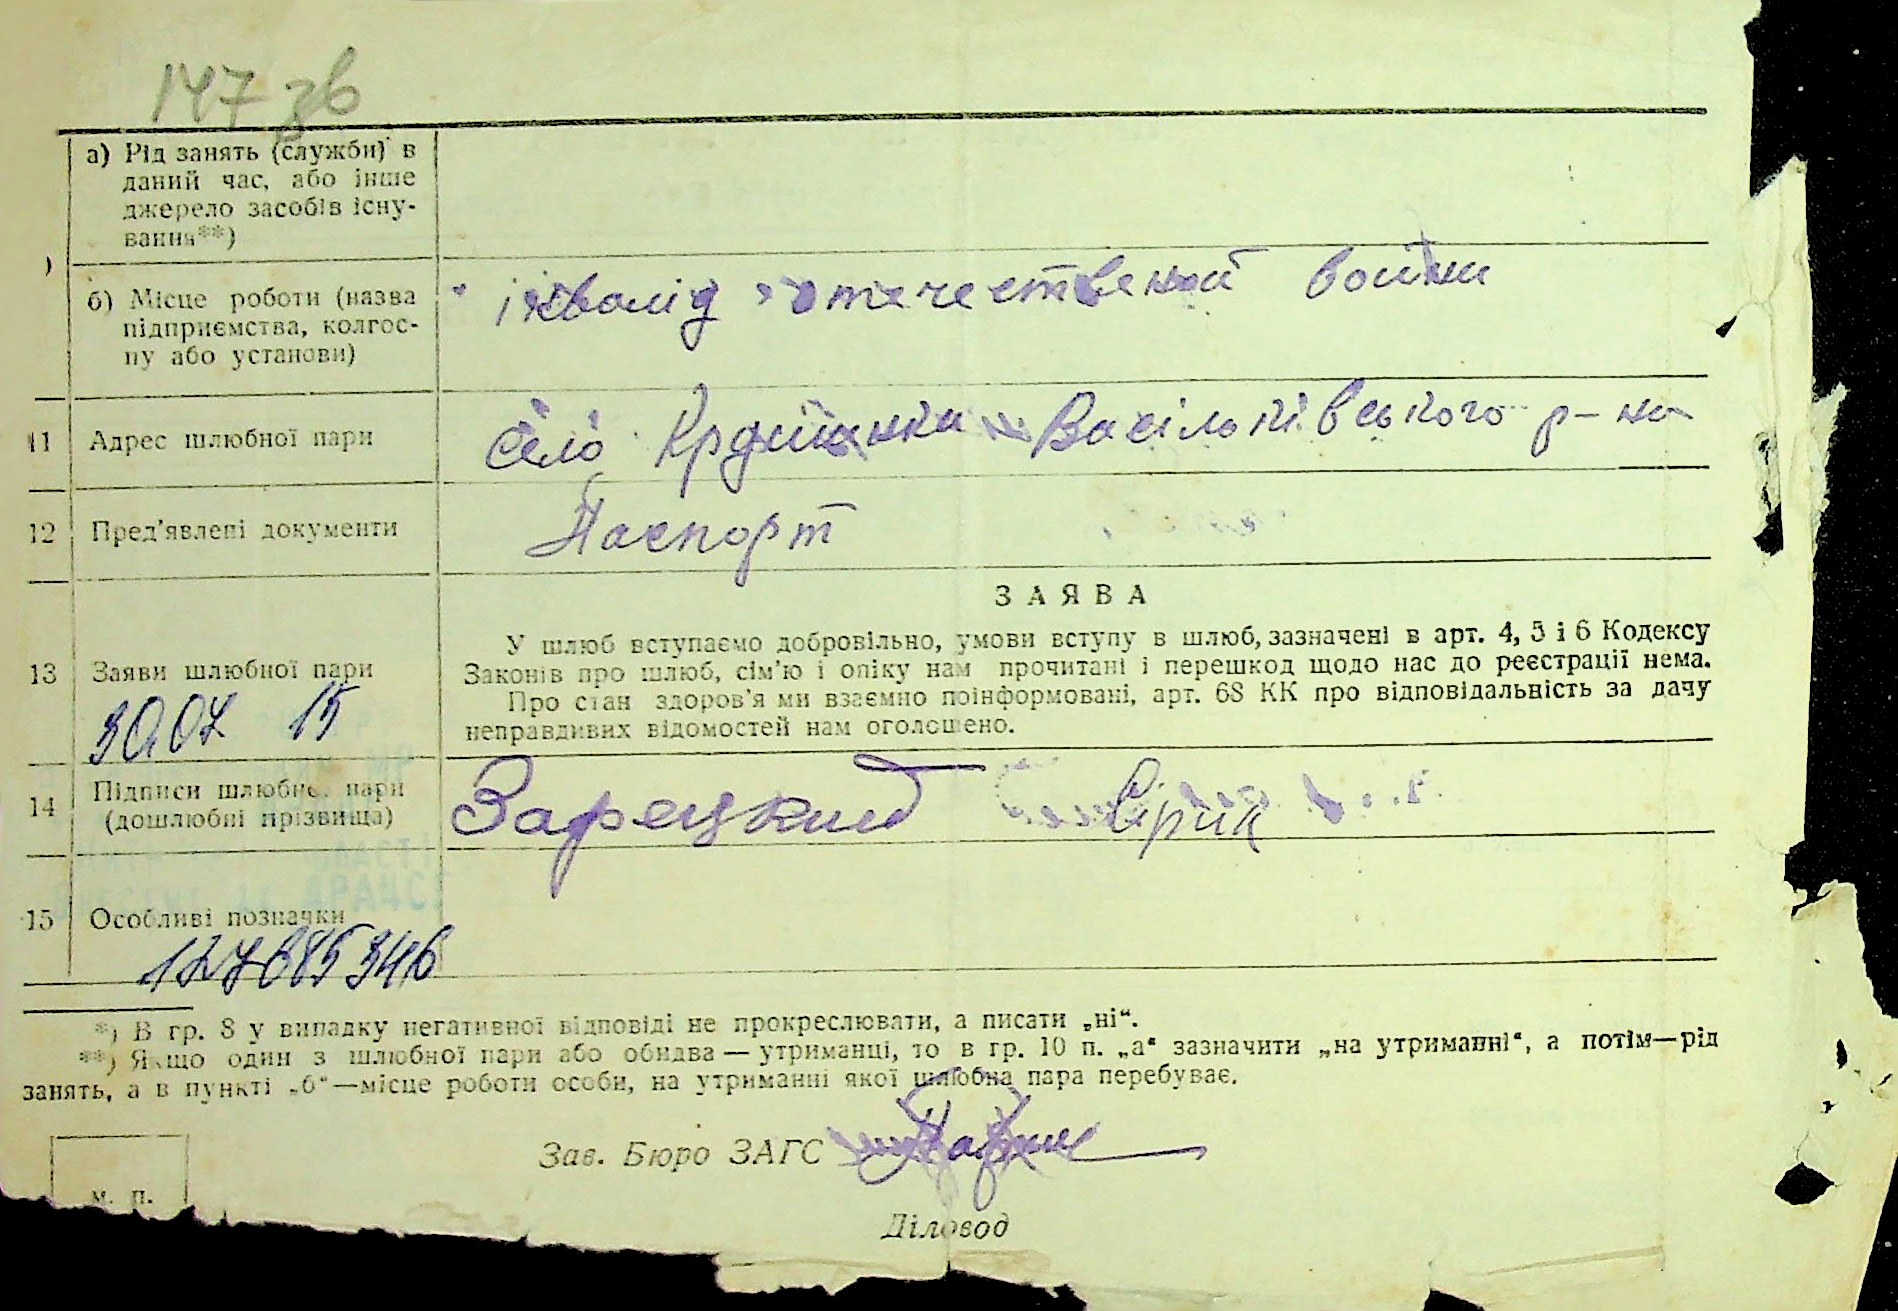 147 зв
а) Рід занять (служби) в
даний час, або інше
джерело засобів існу-
вання**)
б) Місце роботи (назва
підприємства, колгос-
пу або установи)
інвалід отечественой войни
11 Адрес шлюбної пари
село Васільківського р-на
12 Пред'явлені документи
Паспорт
ЗАЯВА
13 Заяви шлюбної пари
У шлюб вступаємо добровільно, умови вступу в шлюб, зазначені в арт. 4, 5 і 6 Кодексу
Законів про шлюб, сім'ю і опіку нам прочитані і перешкод щодо нас до реєстрації нема.
Про стан здоров'я ми взаємно поінформовані, арт. 68 КК про відповідальність за дачу
неправдивих відомостей нам оголошено.
30.07 15
14 Підписи шлюбної пари
(дошлюбні прізвища)
Зарецкий Сірик
15 Особливі позначки
127685346
*) В гр. 8 у випадку негативної відповіді не прокреслювати, а писати „ні“.
**) Якщо один з шлюбної пари або обидва — утриманці, то в гр. 10 п. „а“ зазначити „на утриманні“, а потім—рід
занять, а в пункті „б“—місце роботи особи, на утриманні якої шлюбна пара перебуває.
Зав. Бюро ЗАГС
м. п.
Діловод